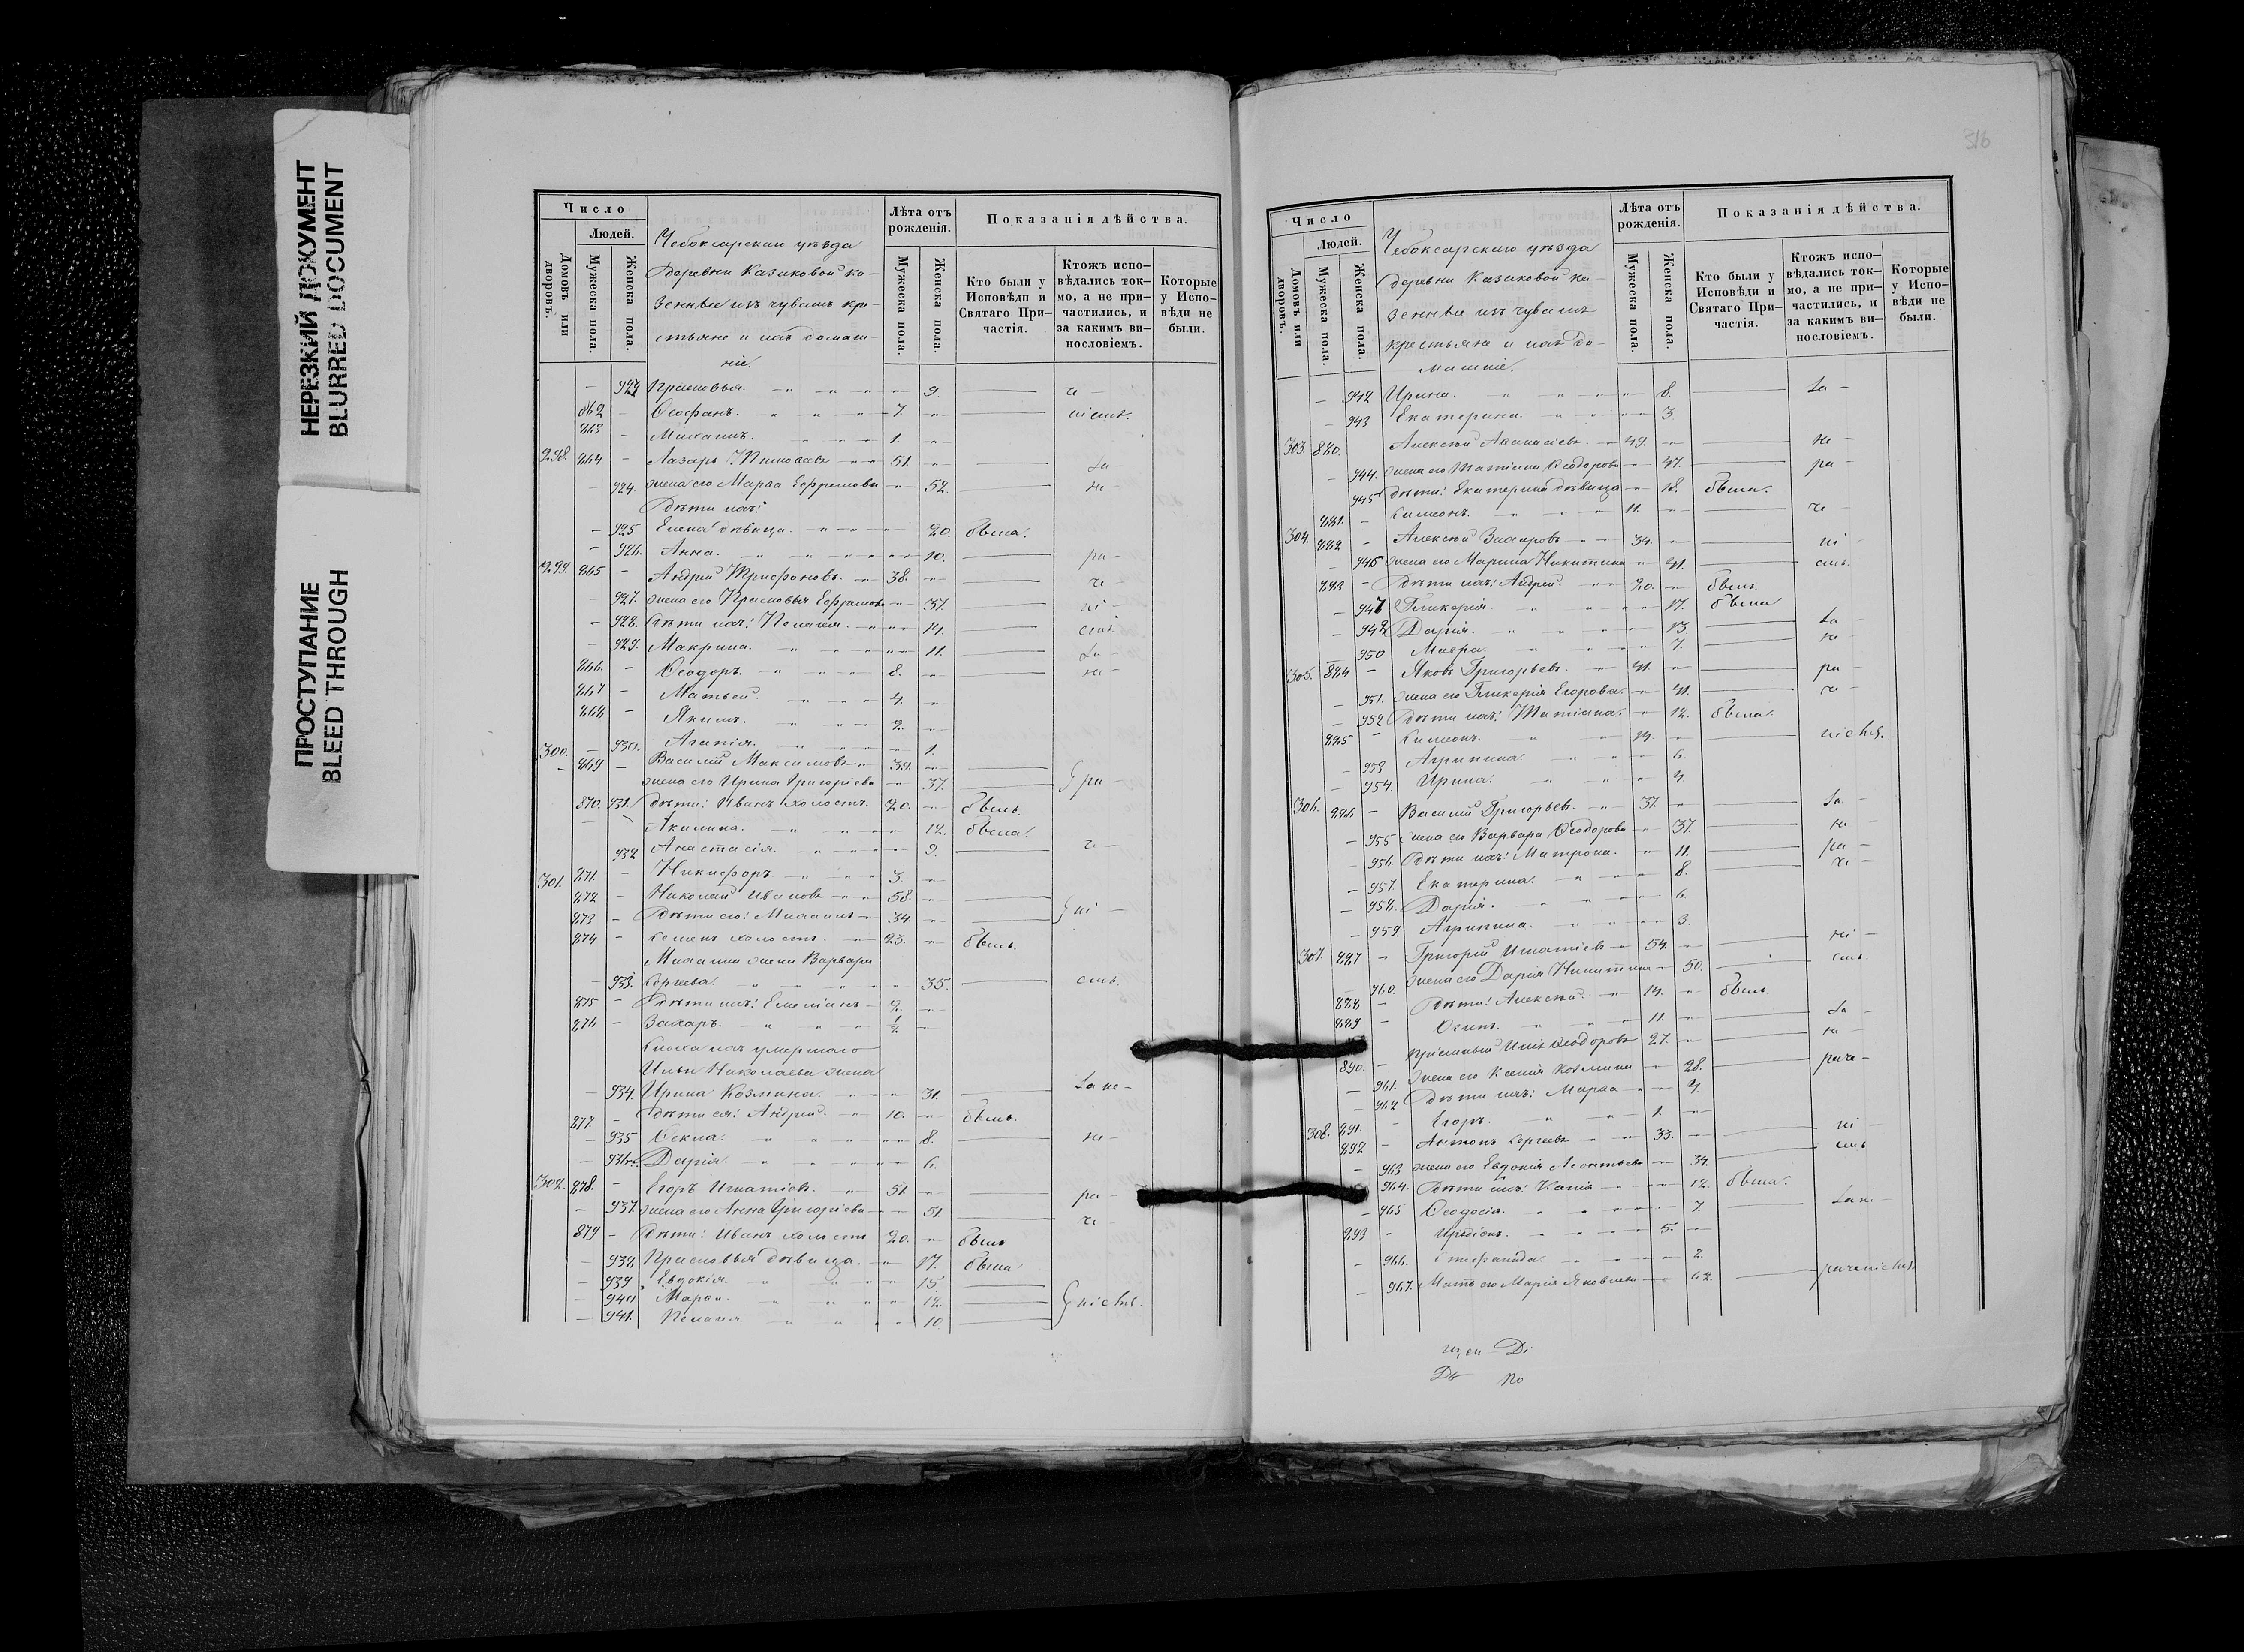 НЕРЕЗКИЙ ДОКУМЕНТ
BLURRED DOCUMENT
ПРОСТУПАНИЕ
BLEED THROUGH
Число
Людей.
Домовъ или дворовъ.
Мужеска пола.
Женска пола.
Чебоксарскаго уѣзда
деревни Казаковой ка-
зенные изъ чувашъ кре-
стьяне и ихъ домаш-
ніе.
Лѣта отъ рожденія.
Мужеска пола.
Женска пола.
Показанія дѣйства.
Кто были у Исповѣди и Святаго При-частія.
Ктожъ испо-вѣдались ток-мо, а не при-частились, и за какимъ ви-нословіемъ.
Которые у Испо-вѣди не были.
— 923 Прасковья. — 9.
862 — Ѳеофанъ. 7. —
863 — Михаилъ. 1. —
298. 864 — Лазарь 51. — За
— 924. жена его Марѳа Ефремова — 52. не
Дѣти ихъ:
— 925 Елена дѣвица. — 20. была.
— 926. Анна. — 10. ра
299. 865 — Андрей Трифоновъ. 38. — че
— 927. жена его Прасковья Ефремова — 37. ні
— 928. Дѣти ихъ: Пелагея. — 14.
— 929. Макрина. — 11. За
866. — Ѳеодоръ. 8. — не
867 — Матвей. 4. —
868 — Якимъ. 2. —
— 930. Агапія. — 1.
300. 869 — Василій Максимовъ 39. —
жена его Ирина Григорьева — 37. ра
870. 931. Дѣти: Иванъ холостъ. 20. — былъ.
Акилина. — 12. была.
932 Анастасія. — 9. че
871. — Никифоръ 3. —
301. 872 — Николай Ивановъ 58. —
873 — Дѣти его: Михаилъ 34. — ні
874 — Семенъ холостъ. 23. — былъ.
Михаила жена Варвара
— 933. Сергеева. — 35.
875 — Дѣти ихъ: Емеліанъ 2. —
876 — Захаръ. 1/2 —
Сноха ихъ умершаго
Ильи Николаева жена
— 934. Ирина Козмина. — 31. За не
877. — Дѣти ея: Андрей. 10. — былъ.
— 935 Ѳекла. — 8. не
— 936. Дарія. — 6.
302. 878. — Егоръ Игнатіевъ. 51. — ра
— 937. жена его Анна Григорьева — 51. че
879 — Дѣти: Иванъ холостъ 20. — былъ
— 938 Прасковья дѣвица. — 17. была
— 939 Евдокія. — 15.
— 940 Марѳа. — 12.
— 941. Пелагія. — 10
516
Число
Людей.
Домовъ или дворовъ.
Мужеска пола.
Женска пола.
Чебоксарскаго уѣзда
деревни Казаковой ка-
зенные изъ чувашъ
крестьяне и ихъ до-
машніе.
Лѣта отъ рожденія.
Мужеска пола.
Женска пола.
Показанія дѣйства.
Кто были у Исповѣди и Святаго При-частія.
Ктожъ испо-вѣдались ток-мо, а не при-частились, и за какимъ ви-нословіемъ.
Которые у Испо-вѣди не были.
— 942 Ирина. — 8. За
— 943 Екатерина. — 3.
303. 880. Алексѣй Аѳанасіевъ. 49. — не
— 944. жена его Татіана Ѳеодорова — 47. ра
945 Дѣти: Екатерина дѣвица — 18. была.
881. — Симеонъ. 11. — че
304. 882 — Алексѣй Захаровъ 39. — ні
— 946 жена его Марина Никитина — 41.
883 — Дѣти ихъ: Андрей. 20. — былъ.
— 947 Гликерія. — 17. была
— 948 Дарія. — 13. За
— 950 Мавра. — 7. не
305. 884 — Яковъ Григорьевъ. 41. — ра
— 951. жена его Гликерія Егорова. — 41. че
— 952 Дѣти ихъ: Татіана. — 12. была.
885 — Симеонъ. 14. —
— 953 Агрипина. — 6.
— 954. Ирина. — 4.
306. 886. — Василій Григорьевъ. 37. — За
— 955 жена его Варвара Ѳеодорова — 37. не
— 956. Дѣти ихъ: Матрона. — 11. ра
— 957. Екатерина. — 8. че
— 958. Дарія. — 6.
— 959. Агрипина. — 3.
307. 887 — Григорій Игнатіевъ 54. — ні
— 960. жена его Дарія Никитина — 50.
888 — Дѣти: Алексѣй. 14. — былъ
889 — Осипъ. 11. — За
890. — Пріемный Илія Ѳеодоровъ 27. — не
— 961. жена его Ксенія Козмина — 28. раче
— 962 Дѣти ихъ: Марѳа — 4.
891. — Егоръ. 1. —
308. 892 — Антонъ Сергеевъ 33. — ні
— 963 жена его Евдокія Леонтьева — 34.
964. Дѣти ихъ: — 12. была.
— 965 Ѳеодосія. — 7.
893 — Иродіонъ. 5. —
— 966. Стефанида. — 2.
— 967. Мать его Марія Яковлева — 62.